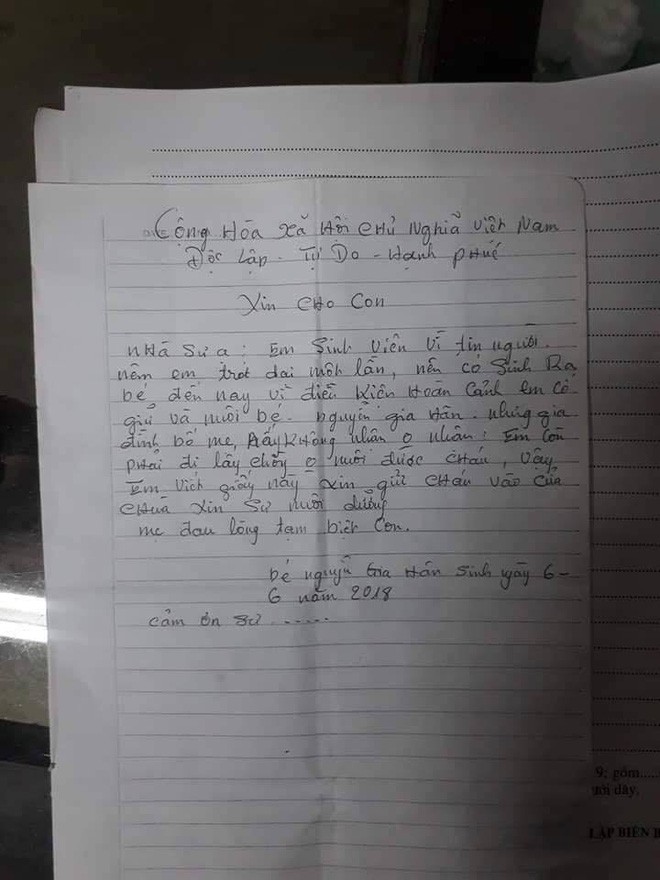 Cộng Hòa Xã Hôi Chủ Nghiã Việt Nam
Độc Lập - Tự Do - Hạnh phúc
Xin Cho Con
nhà Sư ạ: Em Sinh Viên Vì tin người.
nêm em trót dai một lần, nên có Sinh Ra
bé đến nay vì điều Kiên Hoàn Cảnh em cố
giữ và nuôi bé. nguyễn gia Hân. nhưng gia
đình bố mẹ, Không nhân o nhân: Em Còn
phải đi lấy chồng o nuôi được Cháu, Vậy
Em Viết giấy này Xin gửi Chau Vào Của
Chuà Xin Sư nuôi dưỡng
mẹ đau lòng tạm biệt Con.
bé nguyễn Gia Hân Sinh ngày 6-
6 năm 2018
cảm ơn Sư ......
9; gồm.....
ưới đây.
LẬP BIÊN B